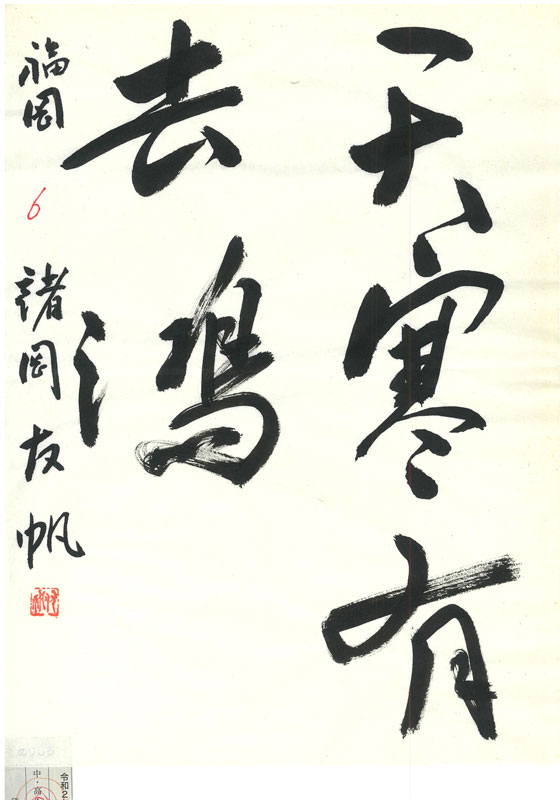 天寒有
去鴻
福岡 6 諸岡友帆
のりしろ
令和2
中・高